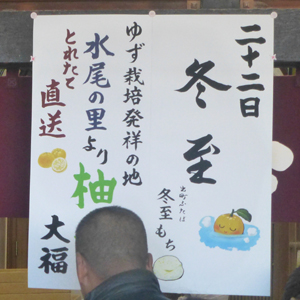 二十二日
冬至
出町ふたば
冬至もち
ゆず栽培発祥の地
水尾の里より柚
とれたて
直送
大福